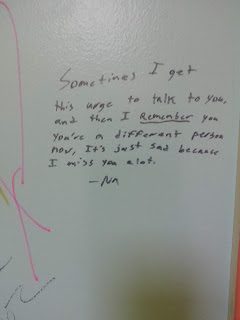 Sometimes I get
this urge to talk to you,
and then I Remember you
you're a different person
now, It's just sad because
I miss you alot.